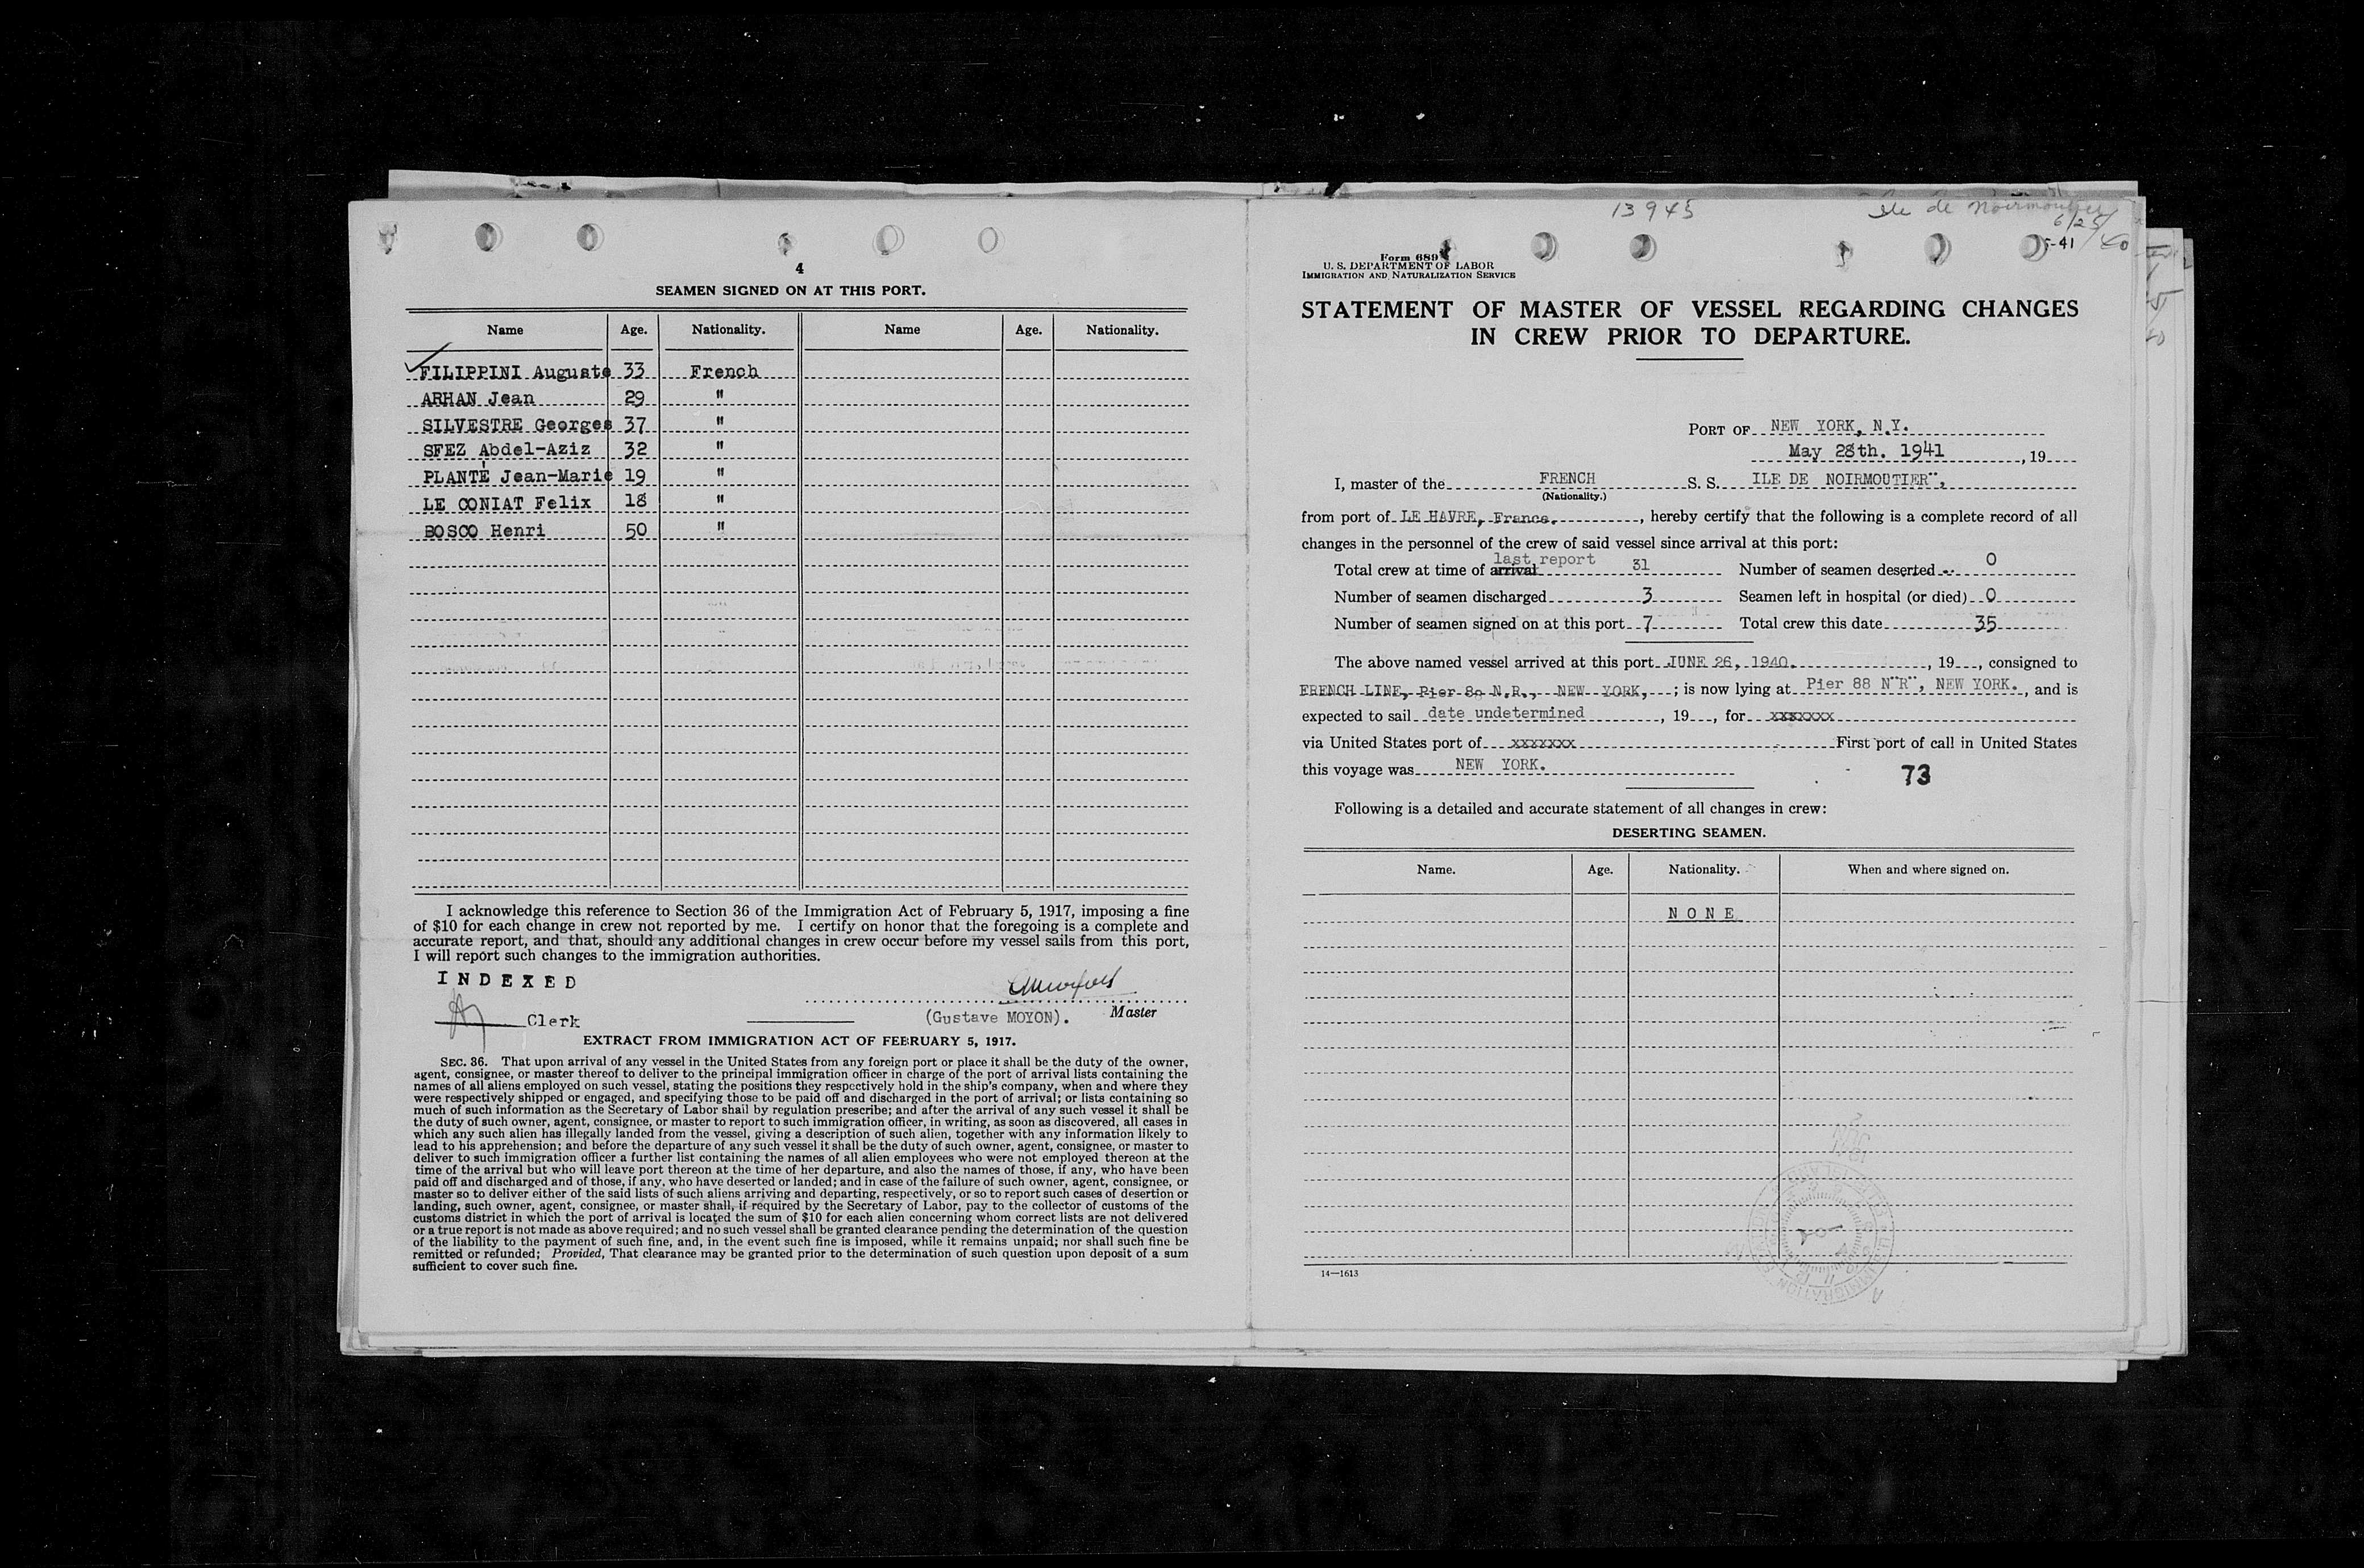 4
SEAMEN SIGNED ON AT THIS PORT.
Name Age. Nationality. Name Age. Nationality.
FILIPPINI Auguste 33 French
ARHAN Jean 29 "
SILVESTRE Georges 37 "
SFEZ Abdel-Aziz 32 "
PLANTÉ Jean-Marie 19 "
LE CONIAT Felix 18 "
BOSCO Henri 50 "
I acknowledge this reference to Section 36 of the Immigration Act of February 5, 1917, imposing a fine
of $10 for each change in crew not reported by me. I certify on honor that the foregoing is a complete and
accurate report, and that, should any additional changes in crew occur before my vessel sails from this port,
I will report such changes to the immigration authorities.
INDEXED
Clerk
(Gustave MOYON). Master
EXTRACT FROM IMMIGRATION ACT OF FEBRUARY 5, 1917.
SEC. 36. That upon arrival of any vessel in the United States from any foreign port or place it shall be the duty of the owner,
agent, consignee, or master thereof to deliver to the principal immigration officer in charge of the port of arrival lists containing the
names of all aliens employed on such vessel, stating the positions they respectively hold in the ship's company, when and where they
were respectively shipped or engaged, and specifying those to be paid off and discharged in the port of arrival; or lists containing so
much of such information as the Secretary of Labor shall by regulation prescribe; and after the arrival of any such vessel it shall be
the duty of such owner, agent, consignee, or master to report to such immigration officer, in writing, as soon as discovered, all cases in
which any such alien has illegally landed from the vessel, giving a description of such alien, together with any information likely to
lead to his apprehension; and before the departure of any such vessel it shall be the duty of such owner, agent, consignee, or master to
deliver to such immigration officer a further list containing the names of all alien employees who were not employed thereon at the
time of the arrival but who will leave port thereon at the time of her departure, and also the names of those, if any, who have been
paid off and discharged and of those, if any, who have deserted or landed; and in case of the failure of such owner, agent, consignee, or
master so to deliver either of the said lists of such aliens arriving and departing, respectively, or so to report such cases of desertion or
landing, such owner, agent, consignee, or master shall, if required by the Secretary of Labor, pay to the collector of customs of the
customs district in which the port of arrival is located the sum of $10 for each alien concerning whom correct lists are not delivered
or a true report is not made as above required; and no such vessel shall be granted clearance pending the determination of the question
of the liability to the payment of such fine, and, in the event such fine is imposed, while it remains unpaid; nor shall such fine be
remitted or refunded; Provided, That clearance may be granted prior to the determination of such question upon deposit of a sum
sufficient to cover such fine.
13945
Ile de Noirmoutier
6/25/40
5-41
Form 689
U. S. DEPARTMENT OF LABOR
IMMIGRATION AND NATURALIZATION SERVICE
STATEMENT OF MASTER OF VESSEL REGARDING CHANGES
IN CREW PRIOR TO DEPARTURE.
PORT OF NEW YORK, N.Y.
May 28th. 1941, 19
I, master of the FRENCH S. S. ILE DE NOIRMOUTIER",
(Nationality.)
from port of LE HAVRE, France., hereby certify that the following is a complete record of all
changes in the personnel of the crew of said vessel since arrival at this port:
last report
Total crew at time of arrival 31 Number of seamen deserted 0
Number of seamen discharged 3 Seamen left in hospital (or died) 0
Number of seamen signed on at this port 7 Total crew this date 35
The above named vessel arrived at this port JUNE 26, 1940., 19, consigned to
FRENCH LINE, Pier 88 N.R., NEW YORK, ; is now lying at Pier 88 N"R", NEW YORK., and is
expected to sail date undetermined, 19, for xxxxxxx
via United States port of xxxxxxx First port of call in United States
this voyage was NEW YORK.
73
Following is a detailed and accurate statement of all changes in crew:
DESERTING SEAMEN.
Name. Age. Nationality. When and where signed on.
NONE
14—1613